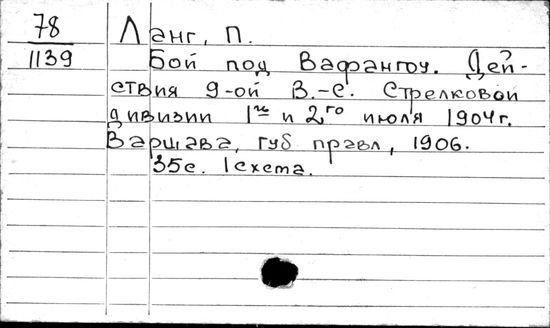 78
1139
Ланг, П.
Бой под Вафангоу. Дей-
ствия 9-ой В.-С. Стрелковой
дивизии 1го и 2го июля 1904 г.
Варшава, губ правл, 1906.
35с. 1 схема.